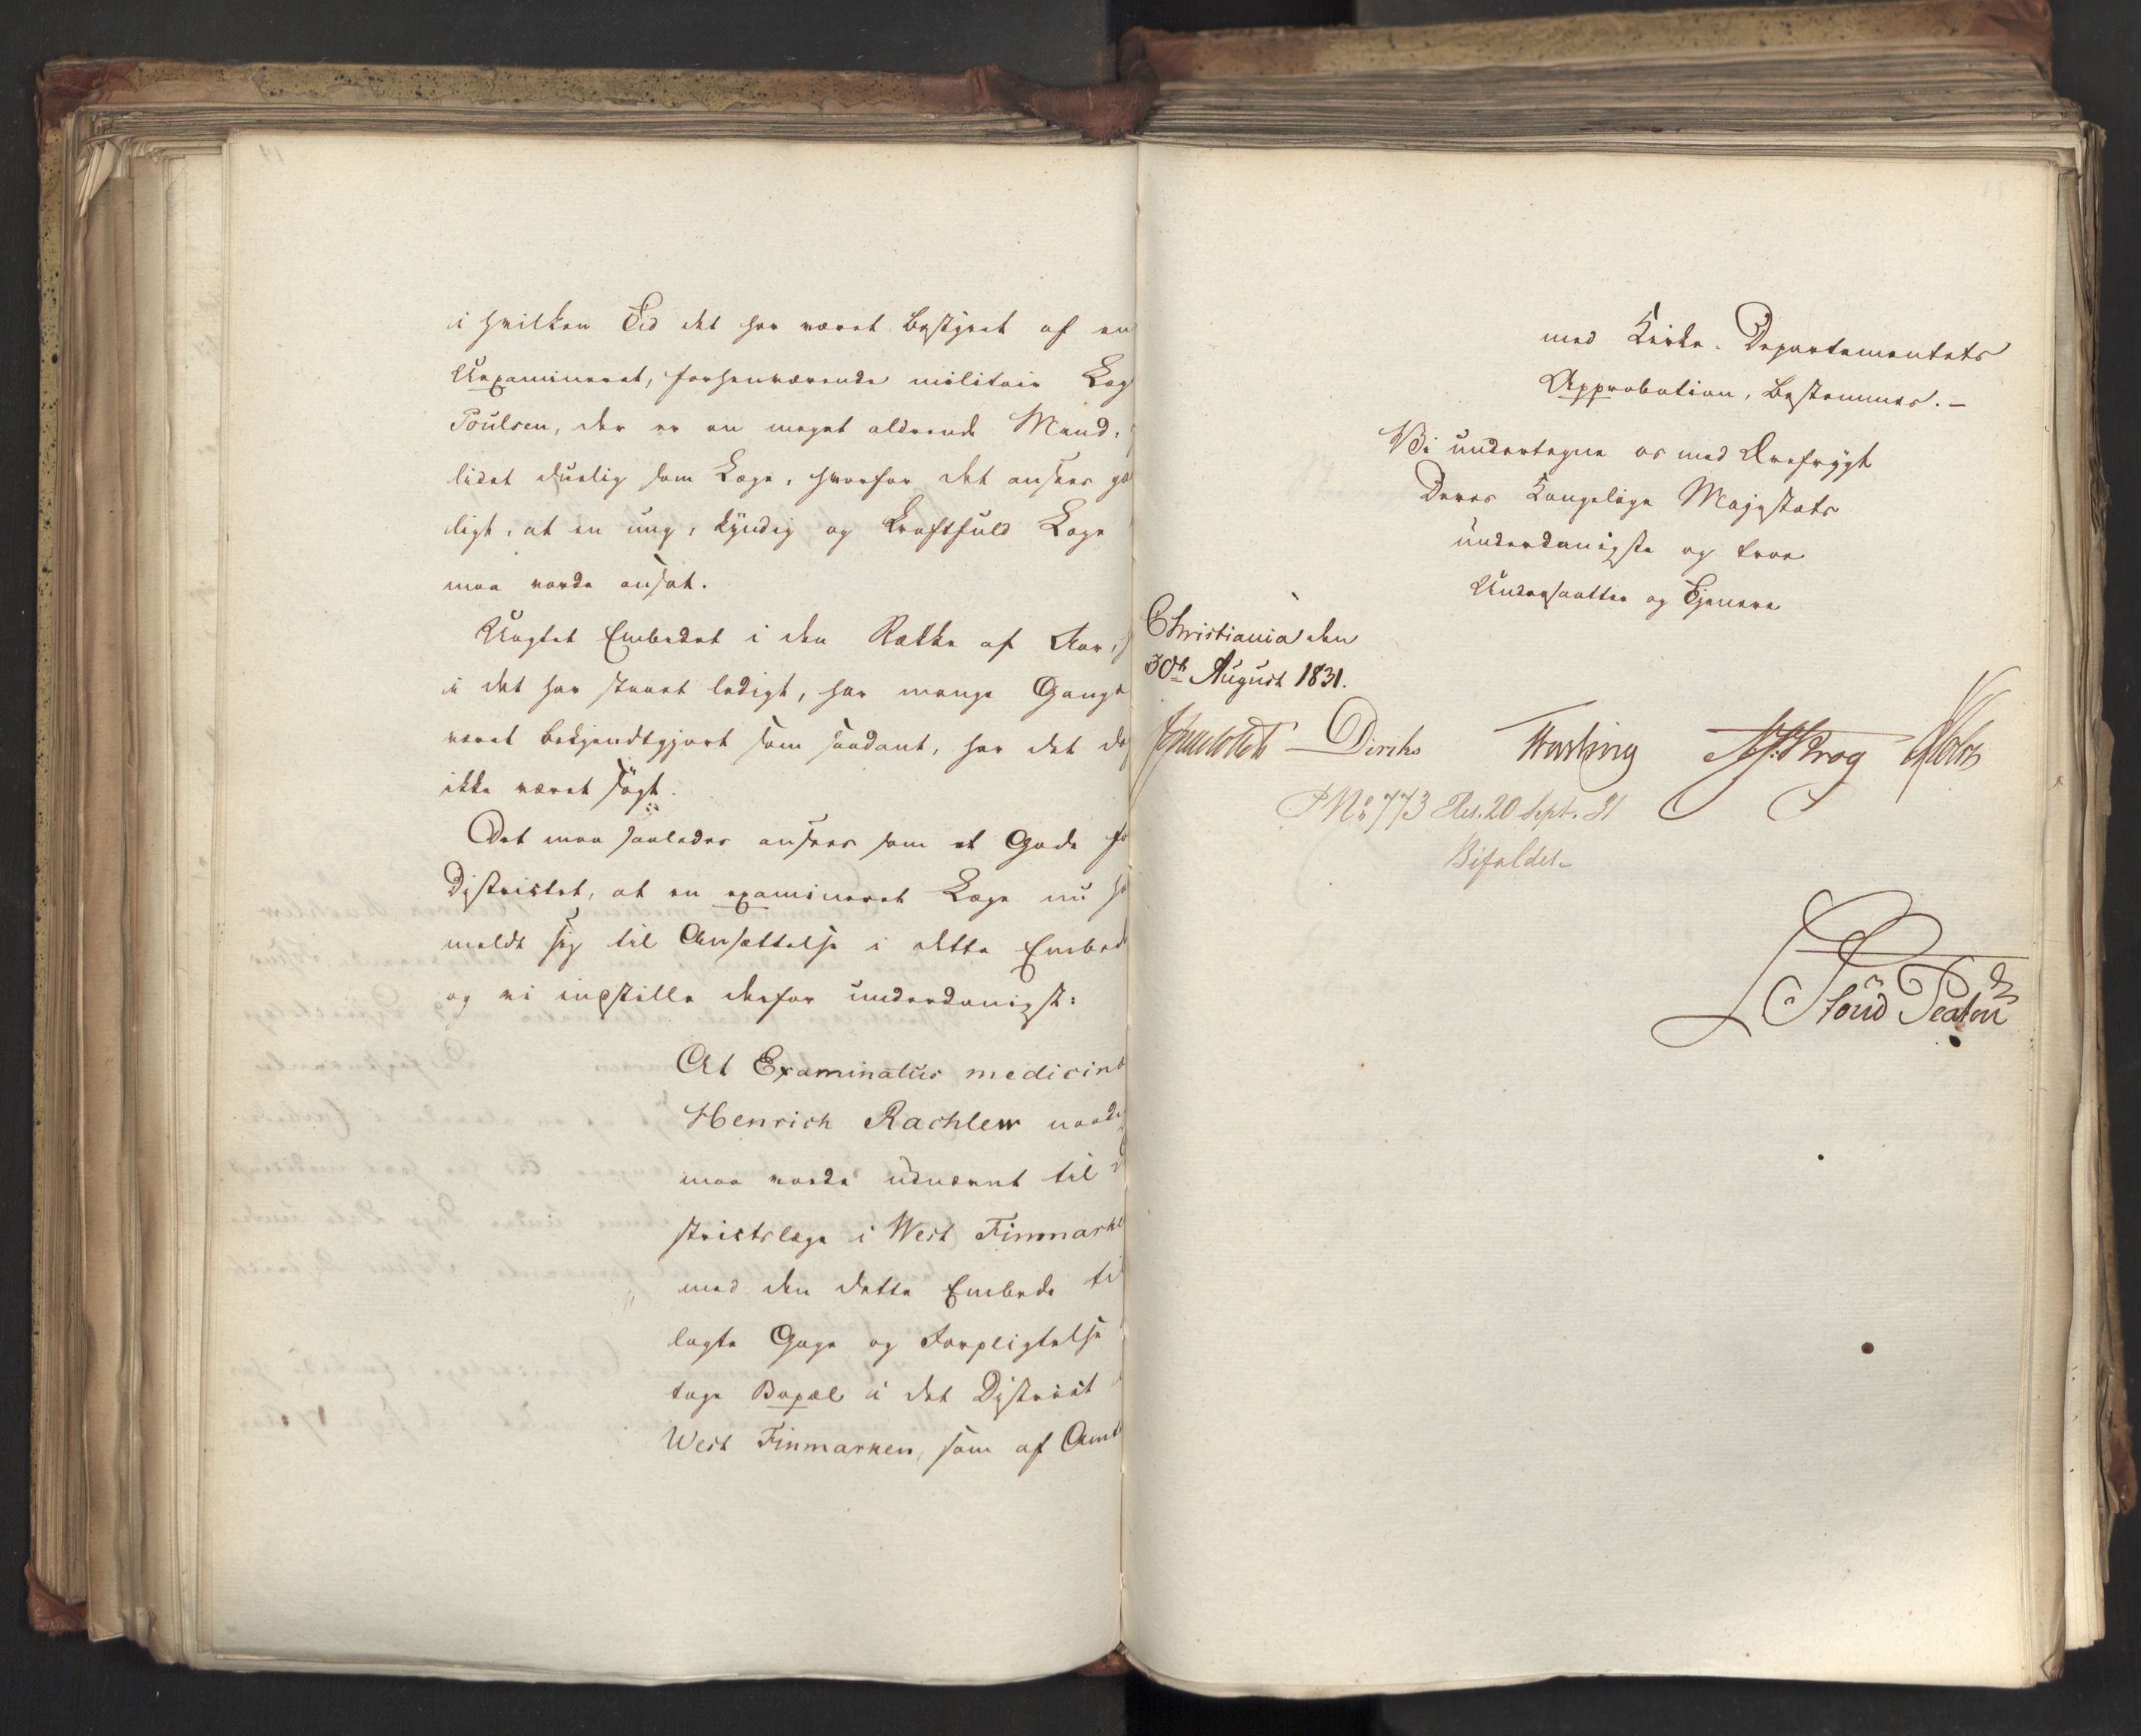 i hvilken Tid det har været bestyret af en
Uexamineret, forhenværende militair Læg
Poulsen, der er en meget aldrende Mand,
lidet duelig som Læge, hvorfor det ansees
ligt, at en ung, kyndig og kraftfuld Læge
maa vorde ansat.
Uagtet Embedet i den Række af Aar,
i det har staaet ledigt, har mange Gange
været bekjendtgjort som saadant, har det
ikke været søgt.
Det maa saaledes ansees som et Gode
Districtet, at en examineret Læge nu
meldt sig til Ansættelse i dette Embed
og vi indstille derfor underdanigst:
At Examinatus medicin
Henrich Rachlew naad
maa vorde udnævnt til
strictslæge i West Finmark
med den dette Embede til
lagte Gage og Forpligtelse
tage Bopæl i det District
West Finmarken, som af Amt
med Kirke-Departementets
Approbation, bestemmes. -
Vi undertegne os med Ærefrygt
Deres Kongelige Majestæts
underdanigste og troe
Undersaatter og Tjenere
Christiania den
30th August 1831.
Diriks Krog Holst
No 773 Res. 20 Sept. 31
Bifaldet